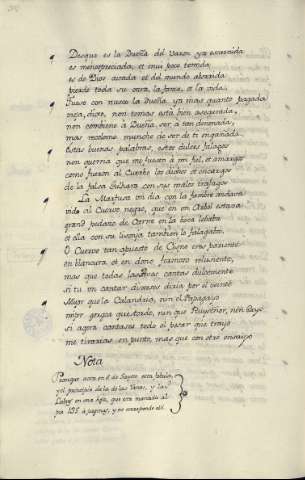 Desque es la Dueña del Varon ya escarnida
es menospreciada, et mui poco temida
es de Dios airada et del mundo aborrida
pierde toda su onra, la fama, et la vida.
Pues con nusco la Dueña, ya mas quanto pagada
vieja, dixo, non temas está bien asegurada,
non conbiene à Dueña, ser à tan denonada,
mas rescelome mucho de ser de ti engañada
Estas buenas palabras, estos dulces falagos
non querria que me fuesen à mi fiel, et amargos
como fueron al Cuervo los dichos et encargos
de la falsa Gulhara con sus malos trafagos
La Marfusa un dia con la fambre andava
vido al Cuervo negro, que en un Arbol estava
grand pedazo de Carne en la boca lebava
et ella con su lisonja tambien lo falagava.
O Cuervo tan apuesto de Cisne eras pariente
en blancura et en dono fermoso reluciente,
mas que todas las aves cantas dulcemente
si tu un cantar dixeres dixia por el veinte
Mejor que la Calandria, nin el Papagayo
mejor gritas que tordo, nin que Ruyseñor, nin Gayo
si agora cantases todo el pesar que traijo
me tirarias en punto, mas que con otro ensayo
Nota
Porque está en el de Gayoso esta fabula,
y el principio de la de las Ranas, y las
en una hoja, que está marcada al
135 à paginas, y no corresponde alli